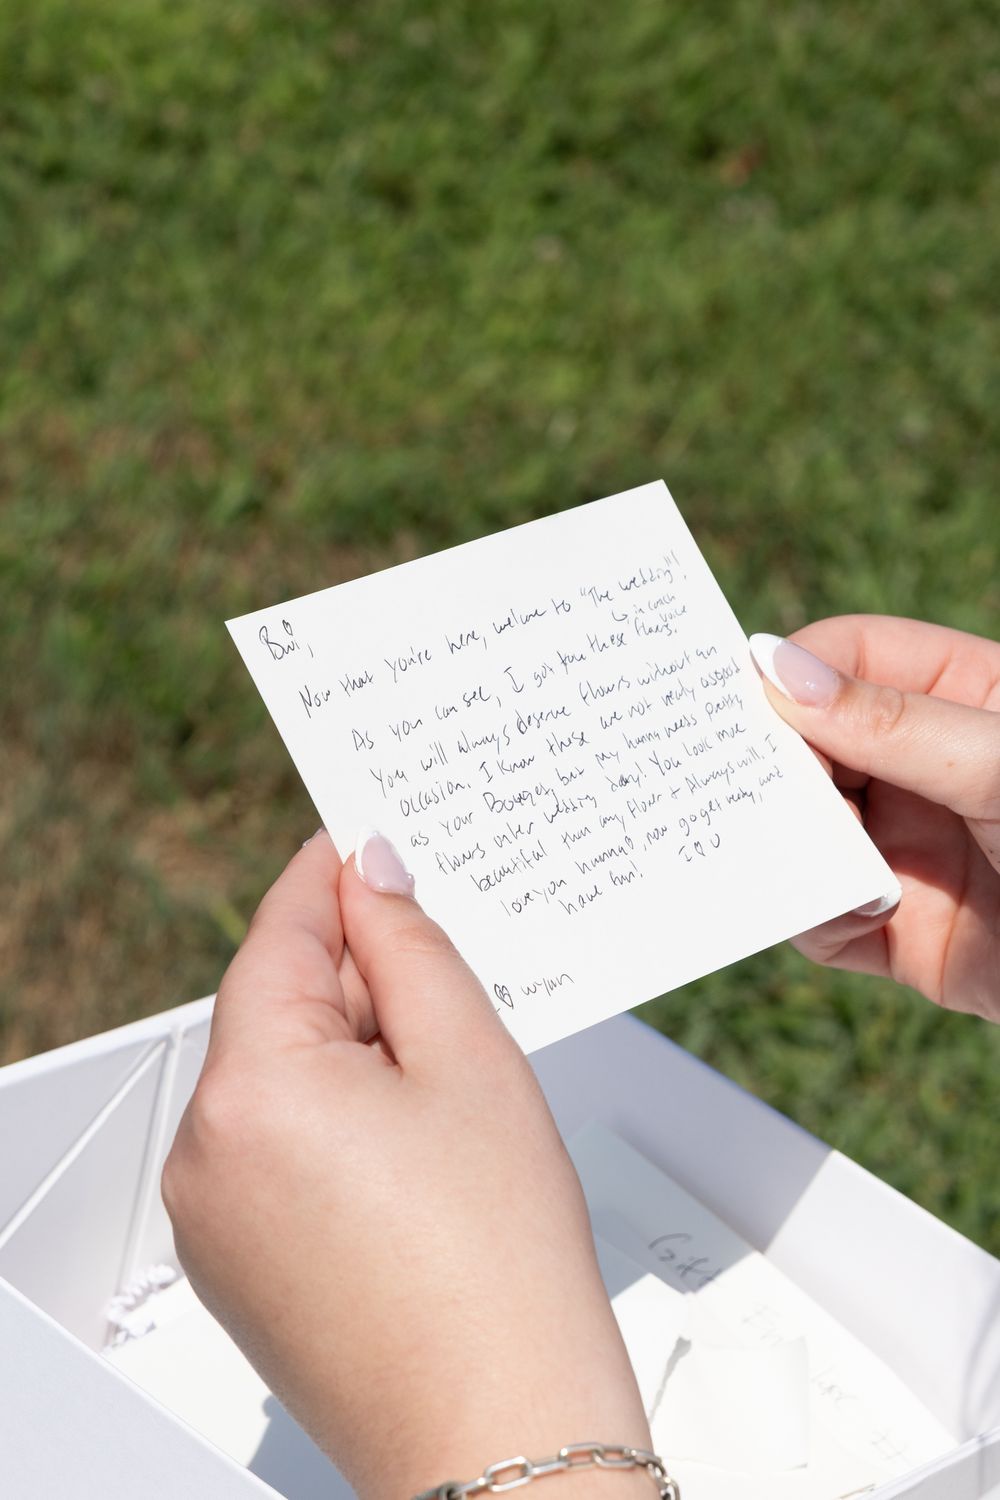 Bui,
Now that you're here, welcome to "The wedding"!
↳ in coach
voice
As you can see, I got you these flowers.
You will always deserve flowers without an
occasion. I know these are not nearly as good
as your Bouquet, but my hunna needs pretty
flowers on her wedding day! You look more
beautiful than any flower + Always will. I
love you hunna, now go get ready, and
have fun! I ♡ U
♡ wynn
Gift
#